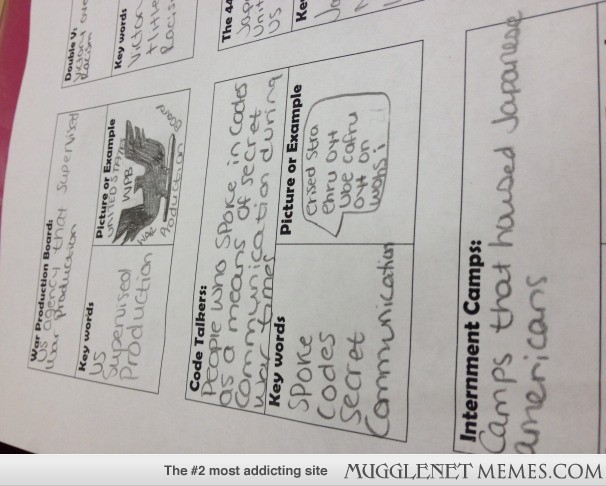 Double V:
Victory over
Racism
Key words
Racis
The 44
Unit
US
Key
War Production Board:
US agency that supervised
War production
Key words
US
Supervised
Production
Picture or Example
UNITED STATES
WPB
War
Production
Board
Code Talkers:
People who spoke in codes
as a means of secret
communication during
war times
Key words
Spoke
Codes
Secret
Communication
Picture or Example
erised stra
ehru oyt
ube cafru
oyt on
wohsi
Internment Camps:
Camps that housed Japanese
americans
The #2 most addicting site
MUGGLENET MEMES.COM